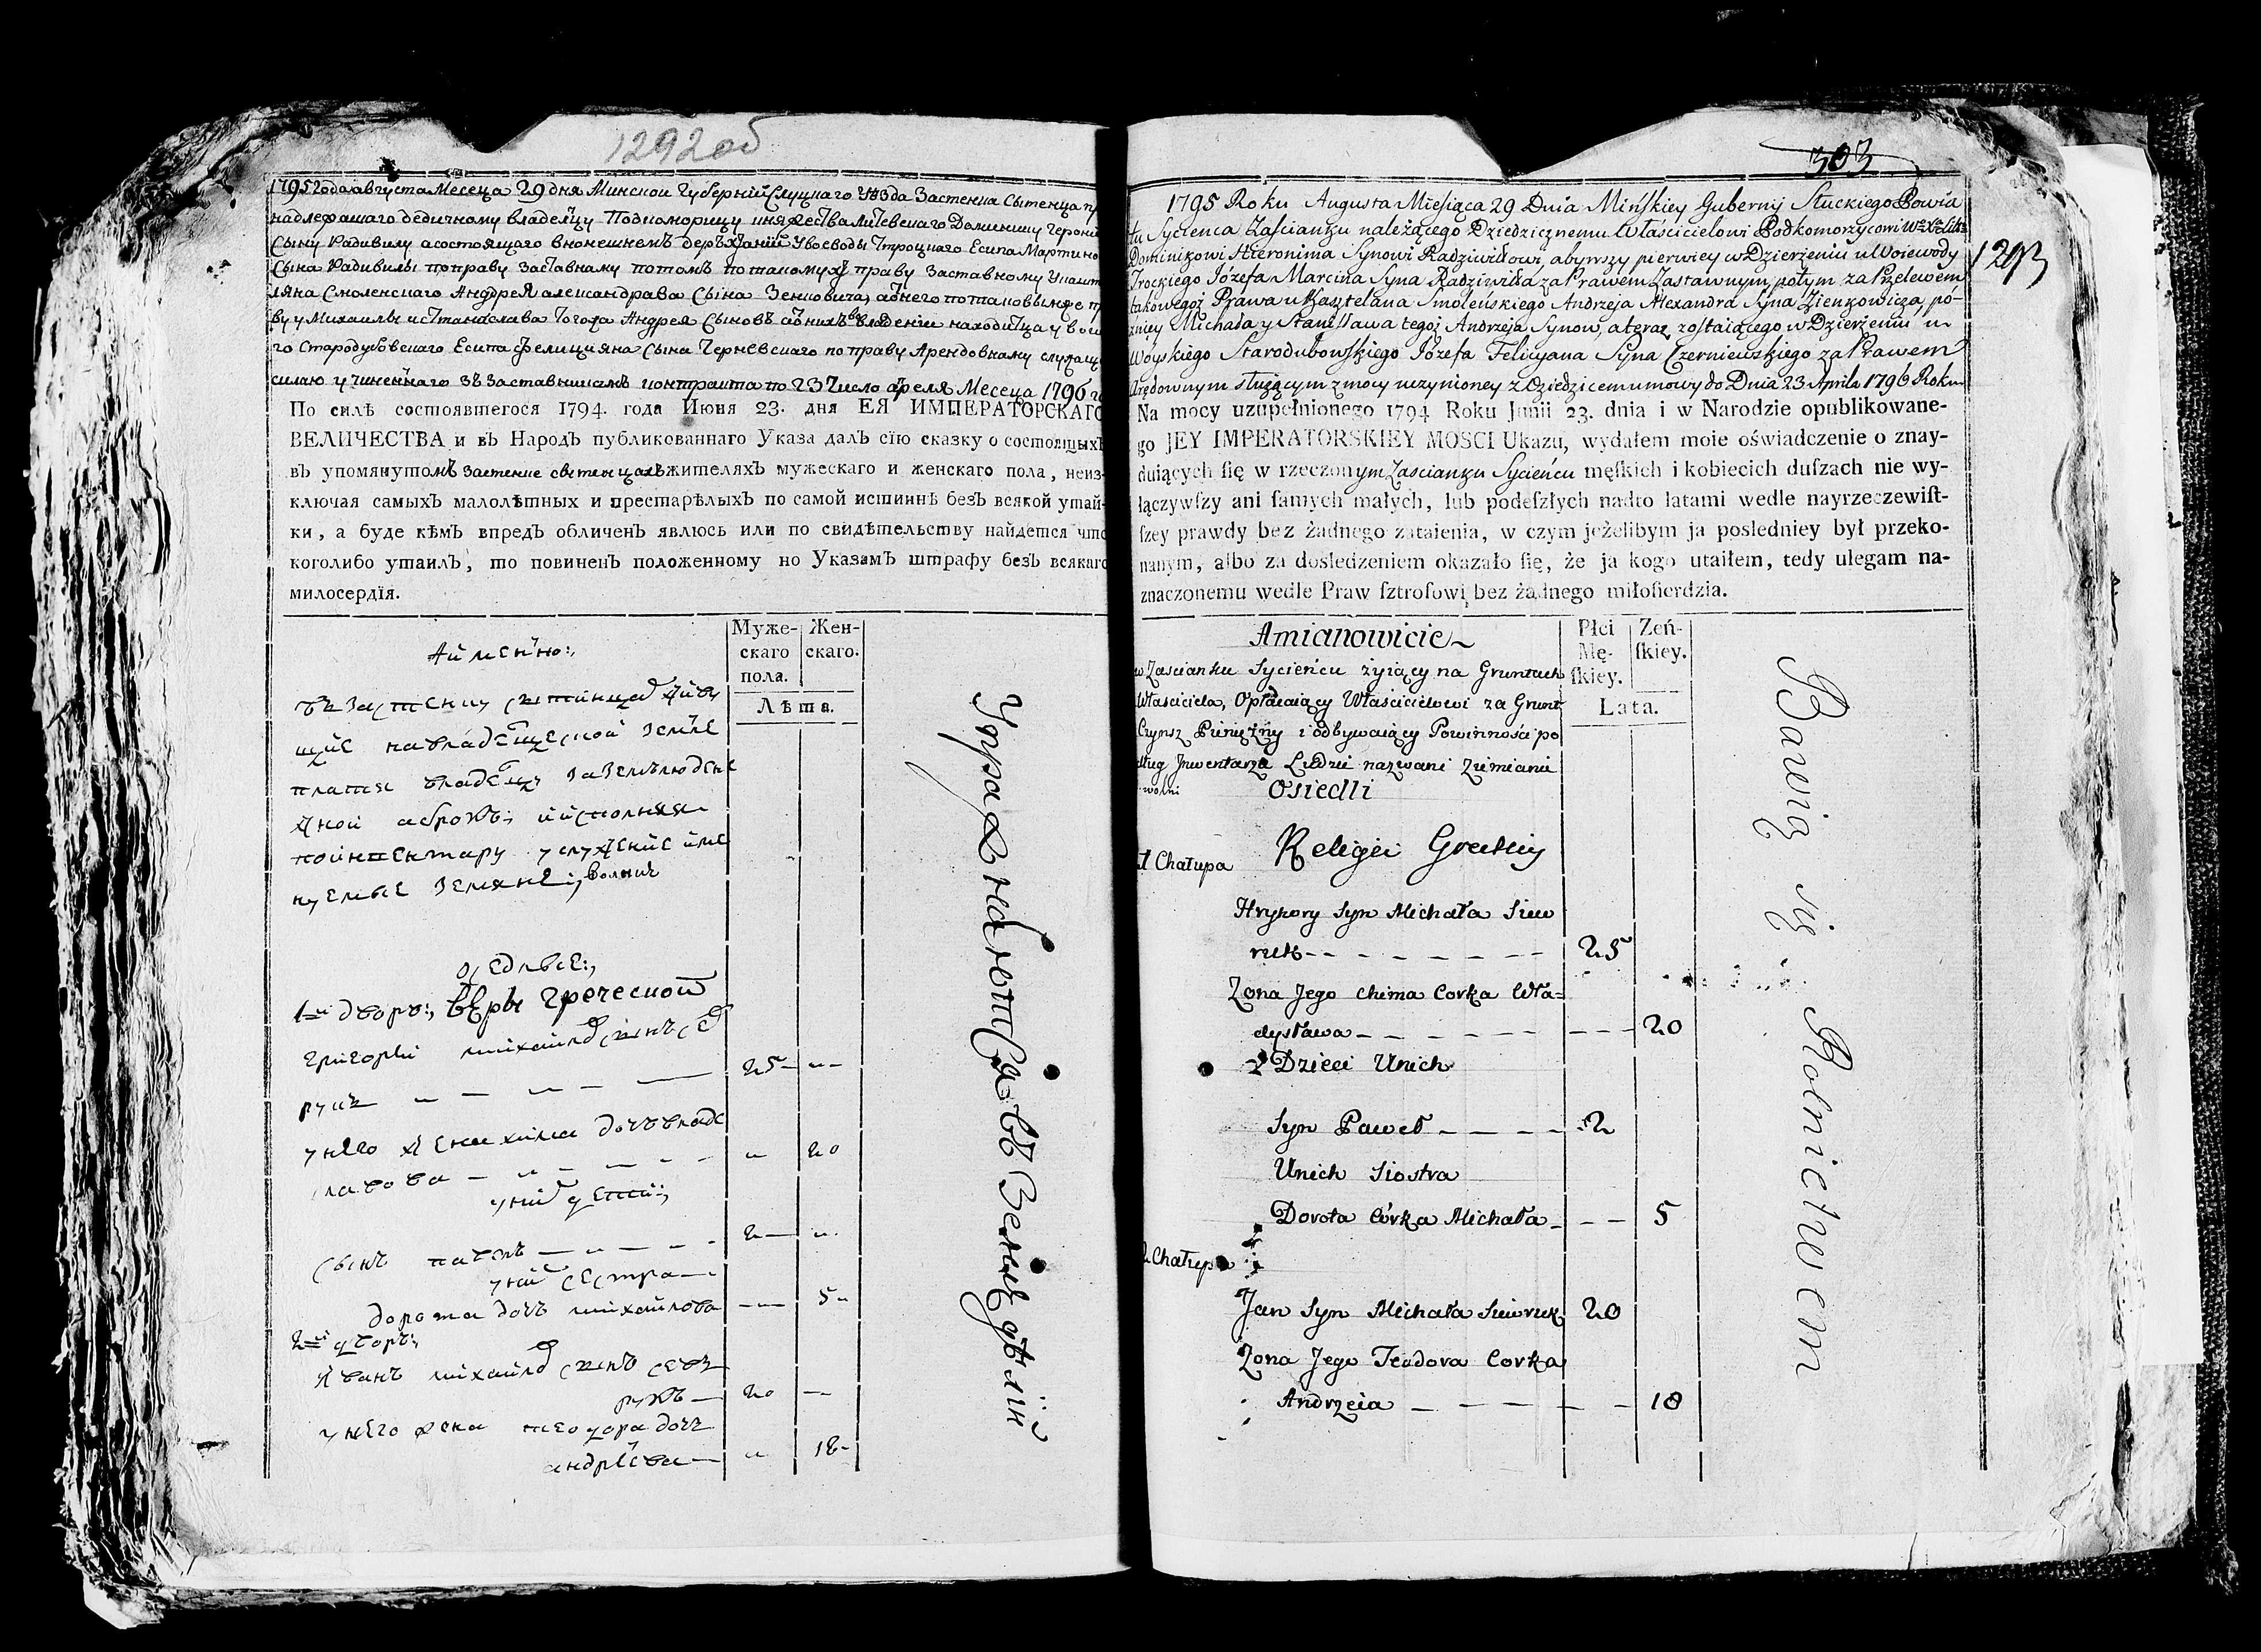 1292об
1795 года августа Месеца 29 дня Минской Губерній Слуцкаго Уѣзда Застенка Сытенца
надлежащаго дедичному владелцу Подкоморицу княжества Литевскаго Доминику
Сыну Радивилу а состоящаго в нонешнемъ держаній у воеводы троцкаго Есипа Мартино
Сына Радивилы поправу заставному потомъ потакомужъ праву заставному
ляна Смоленскаго Андрея александрава Сына Зенковича, а
ву у Михаилы и Станислава того Андрея Сыновъ владеніи находитца у
го Стародубовскаго Есипа фелицияна Сына Черневскаго по праву Арендовному служащ
силаю учиненнаго зъ заставникамъ контракта по 23 Число апреля Месеца 1796
По силѣ состоявшегося 1794. года Июня 23. дня ЕЯ ИМПЕРАТОРСКАГО
ВЕЛИЧЕСТВА и въ Народъ публикованнаго Указа далъ сїю сказку о состоящыхъ
въ упомянутомъ Застенке сытенцахъ жителяхъ мужескаго и женскаго пола, неиз-
ключая самыхъ малолѣтныхъ и престарѣлыхъ по самой истиннѣ безъ всякой утай-
ки, а буде кѣмъ впредъ обличенъ явлюсь или по свидѣтельству найдется что
коголибо утаилъ, то повиненъ положенному но Указамъ штрафу безъ всякаго
милосердїя.
Муже- Жен-
скаго скаго.
пола.
Лѣта.
Аименно:
въ застенку сытинцах живу
щие на владелческой земле
платя владелцу за землю дене
жной аброкъ; и исполняя
по инвентару услужение име
нуемые земяне; волние
оседлые:
1й дворъ; веры греческой
григорій михайлов сынъ се
рукъ 25
у него жена химa дочъ владе
лавова 20
у них дети:
сынъ павелъ 2
у них сестра
дорота дочъ михайлова 5
2й дворъ;
иванъ михайлов сынъ севе
рукъ 20
у него жена теодора дочъ
андреева 18
Упражнаютса въ Земледѣліи
303
1293
1795 Roku Augusta Miesiąca 29 Dnia Mińskiey Gubernij Słuckiego Powia
tu Sycienca Zaścianku należącego Dziedzicznemu Właścicielowi Podkomorzycowi
Dominikowi Hieronima Synowi Radziwiłłowi, a bywszy pierwiey w Dzierżeniu u Woiewody
Trockiego Józefa Marcina Syna Radziwiłła za Prawem Zastawnym, potym za Przelewem
takowegoż Prawa u Kasztelana Smoleńskiego Andrzeja Alexandra Syna Zienkowicza, po-
zniey Michała y Stanisława tegoż Andrzeja Synow, a teraz zostaiącego w Dzierżeniu u
Woyskiego Starodubowskiego Józefa Felicyana Syna Czerniewskiego za Prawem
Arędownym służącym z mocy uczynioney z Dziedzicem umowy do Dnia 23 Aprila 1796 Roku
Na mocy uzupełnionego 1794 Roku Junii 23. dnia i w Narodzie opublikowane-
go JEY IMPERATORSKIEY MOSCI Ukazu, wydałem moie oświadczenie o znay-
duiących ſię w rzeczonym Zascianku Sycieńcu męſkich i kobiecich duſzach nie wy-
łączywſzy ani ſamych małych, lub podeſzłych nadto latami wedle nayrzeczewiſt-
ſzey prawdy bez żadnego zataienia, w czym jeżelibym ja posledniey był przeko-
nanym, albo za dosledzeniem okazało ſię, że ja kogo utaiłem, tedy ulegam na-
znaczonemu wedle Praw ſztrofowi bez żadnego miłoſierdzia.
Płci Zeń-
Mę- ſkiey.
ſkiey.
Lata.
Amianowicie
w Zascianku Sycieńcu żyiący na Gruntach
Własciciela, Opłacaiący Własciciełowi za Grunt
Czynsz Pieniężny i odbywaiący Powinności po
dług Jnwentarza Ludzie nazwani Ziemianie
wolni Osiedli
Religii Greckiey
1 Chałupa
Hryhory Syn Michała Siew
ruk 25
Zona Jego Chima Corka Wła=
dysława 20
2 Dzieci Unich
Syn Paweł 2
Unich Siostra
Dorota Córka Michała 5
2 Chałupa
Jan Syn Michała Siewruk 20
Zona Jego Teodora Corka
Andrzeia 18
Bawią się Rolnictwem